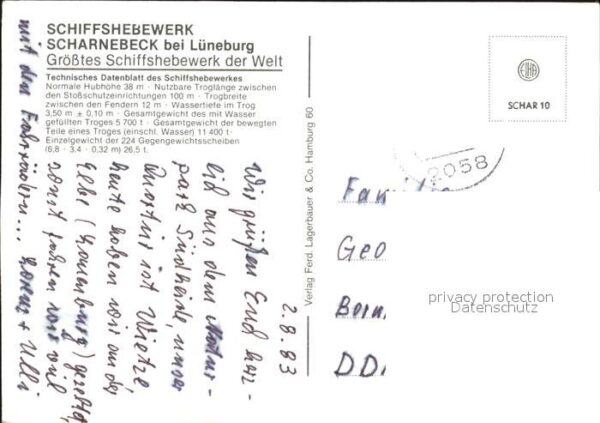 SCHIFFSHEBEWERK
SCHARNEBECK bei Lüneburg
Größtes Schiffshebewerk der Welt
Technisches Datenblatt des Schiffshebewerkes
Normale Hubhöhe 38 m · Nutzbare Troglänge zwischen
den Stoßschutzeinrichtungen 100 m · Trogbreite
zwischen den Fendern 12 m · Wassertiefe im Trog
3,50 m ± 0,10 m · Gesamtgewicht des mit Wasser
gefüllten Troges 5 700 t · Gesamtgewicht der bewegten
Teile eines Troges (einschl. Wasser) 11 400 t ·
Einzelgewicht der 224 Gegengewichtsscheiben
(6,8 · 3,4 · 0,32 m) 26,5 t.
2.8.83
Wir grüßen Euch herz-
lich aus dem Natur-
park Südheide, unser
Quartier ist Wietze
heute haben wir an der
Elbe (Lauenburg) gezeltet,
sonst fahren wir viel
mit den Fahrrädern... + Ulli
Verlag Ferd. Lagerbauer & Co. Hamburg 60
SCHAR 10
2058
Fam
Geo
Bern.
DD
privacy protection
Datenschutz